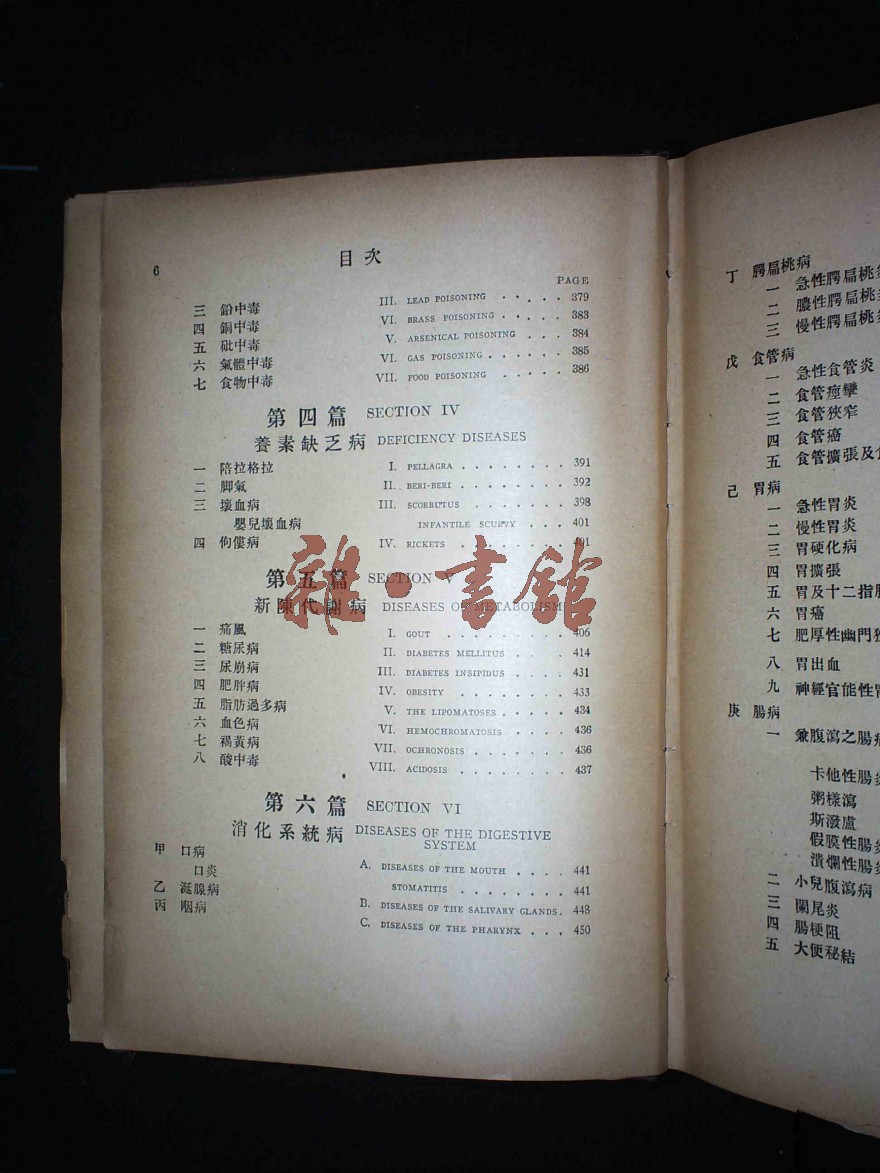 6
目次
PAGE
三 鉛中毒 III. LEAD POISONING . . . . . 379
四 銅中毒 VI. BRASS POISONING . . . . . 383
五 砒中毒 V. ARSENICAL POISONING . . . . 384
六 氣體中毒 VI. GAS POISONING . . . . . . 385
七 食物中毒 VII. FOOD POISONING . . . . . 386
第四篇 SECTION IV
養素缺乏病 DEFICIENCY DISEASES
一 陪拉格拉 I. PELLAGRA . . . . . . . . 391
二 脚氣 II. BERI-BERI . . . . . . . . 392
三 壞血病 III. SCORBUTUS . . . . . . . 398
嬰兒壞血病 INFANTILE SCURVY . . . 401
四 佝僂病 IV. RICKETS . . . . . . . . 401
第五篇 SECTION V
新陳代謝病 DISEASES OF METABOLISM
一 痛風 I. GOUT . . . . . . . . . 406
二 糖尿病 II. DIABETES MELLITUS . . . . 414
三 尿崩病 III. DIABETES INSIPIDUS . . . . 431
四 肥胖病 IV. OBESITY . . . . . . . . 433
五 脂肪過多病 V. THE LIPOMATOSES . . . . . 434
六 血色病 VI. HEMOCHROMATOSIS . . . . 436
七 褐黃病 VII. OCHRONOSIS . . . . . . . 436
八 酸中毒 VIII. ACIDOSIS . . . . . . . . 437
第六篇 SECTION VI
消化系統病 DISEASES OF THE DIGESTIVE
SYSTEM
甲 口病 A. DISEASES OF THE MOUTH . . . . 441
口炎 STOMATITIS . . . . . . . . 441
乙 涎腺病 B. DISEASES OF THE SALIVARY GLANDS. 448
丙 咽病 C. DISEASES OF THE PHARYNX . . . 450
雜·書館
丁 腭扁桃病
一 急性腭扁桃
二 膿性腭扁桃
三 慢性腭扁桃
戊 食管病
一 急性食管炎
二 食管痙攣
三 食管狹窄
四 食管癌
五 食管擴張及
己 胃病
一 急性胃炎
二 慢性胃炎
三 胃硬化病
四 胃擴張
五 胃及十二指
六 胃癌
七 肥厚性幽門
八 胃出血
九 神經官能性
庚 腸病
一 兼腹瀉之腸
卡他性腸
粥樣瀉
斯潑盧
假膜性腸
潰爛性腸
二 小兒腹瀉病
三 闌尾炎
四 腸梗阻
五 大便秘結